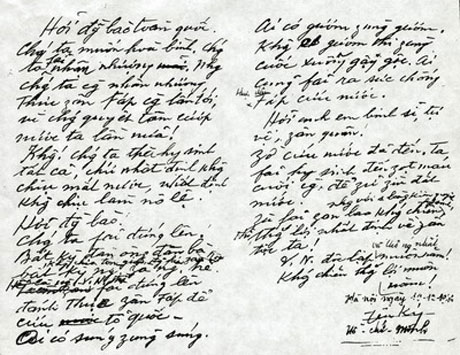 Hỡi đg bào toàn quốc.
Chg ta muốn hoà bình, chg
ta fải nhân nhượng. Nhg
chg ta cg nhân nhượng
thực zân Fáp cg lấn tới,
vì chg quyết tâm cướp
nước ta lần nữa!
Khg! Chg ta thà hy sinh
tất cả, chứ nhất định khg
chịu mất nước, nhất định
khg chịu làm nô lệ.
Hỡi đg bào!
Chg ta fải đứng lên.
Bất kỳ đàn ông, đàn bà,
bất kỳ ng già, ng trẻ.
fải đứng lên
đánh thực zân Fáp để
cứu tổ quốc –
Ai có súng zùng súng.
Ai có gươm zùng gươm,
Khg có gươm thì zùng
cuốc xuổng gậy gộc. Ai
cũng fải ra sức chống
Fáp cứu nước.
Hỡi anh em binh sĩ, tự
vệ, zân quân.
Zờ cứu nước đã đến, ta
fải hy sinh đến zọt máu
cuối cg, để zữ zìn đất
nước.
Zù fải zan lao khg chiến,
thắng lợi nhất định về zân
tộc ta!
V.N. độc lập
và thống nhất
muôn năm!
Khg chiến thg lợi muôn
năm!
Hà nội ngày
Hồ chí Minh